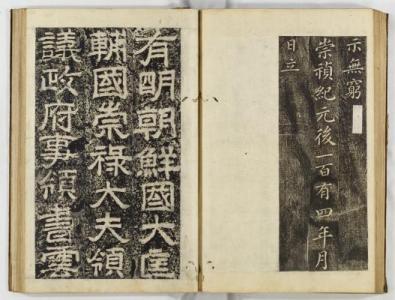 示無窮
崇禎紀元後一百有四年月
日立
有明朝鮮國大匡
輔國崇祿大夫領
議政府事領書雲